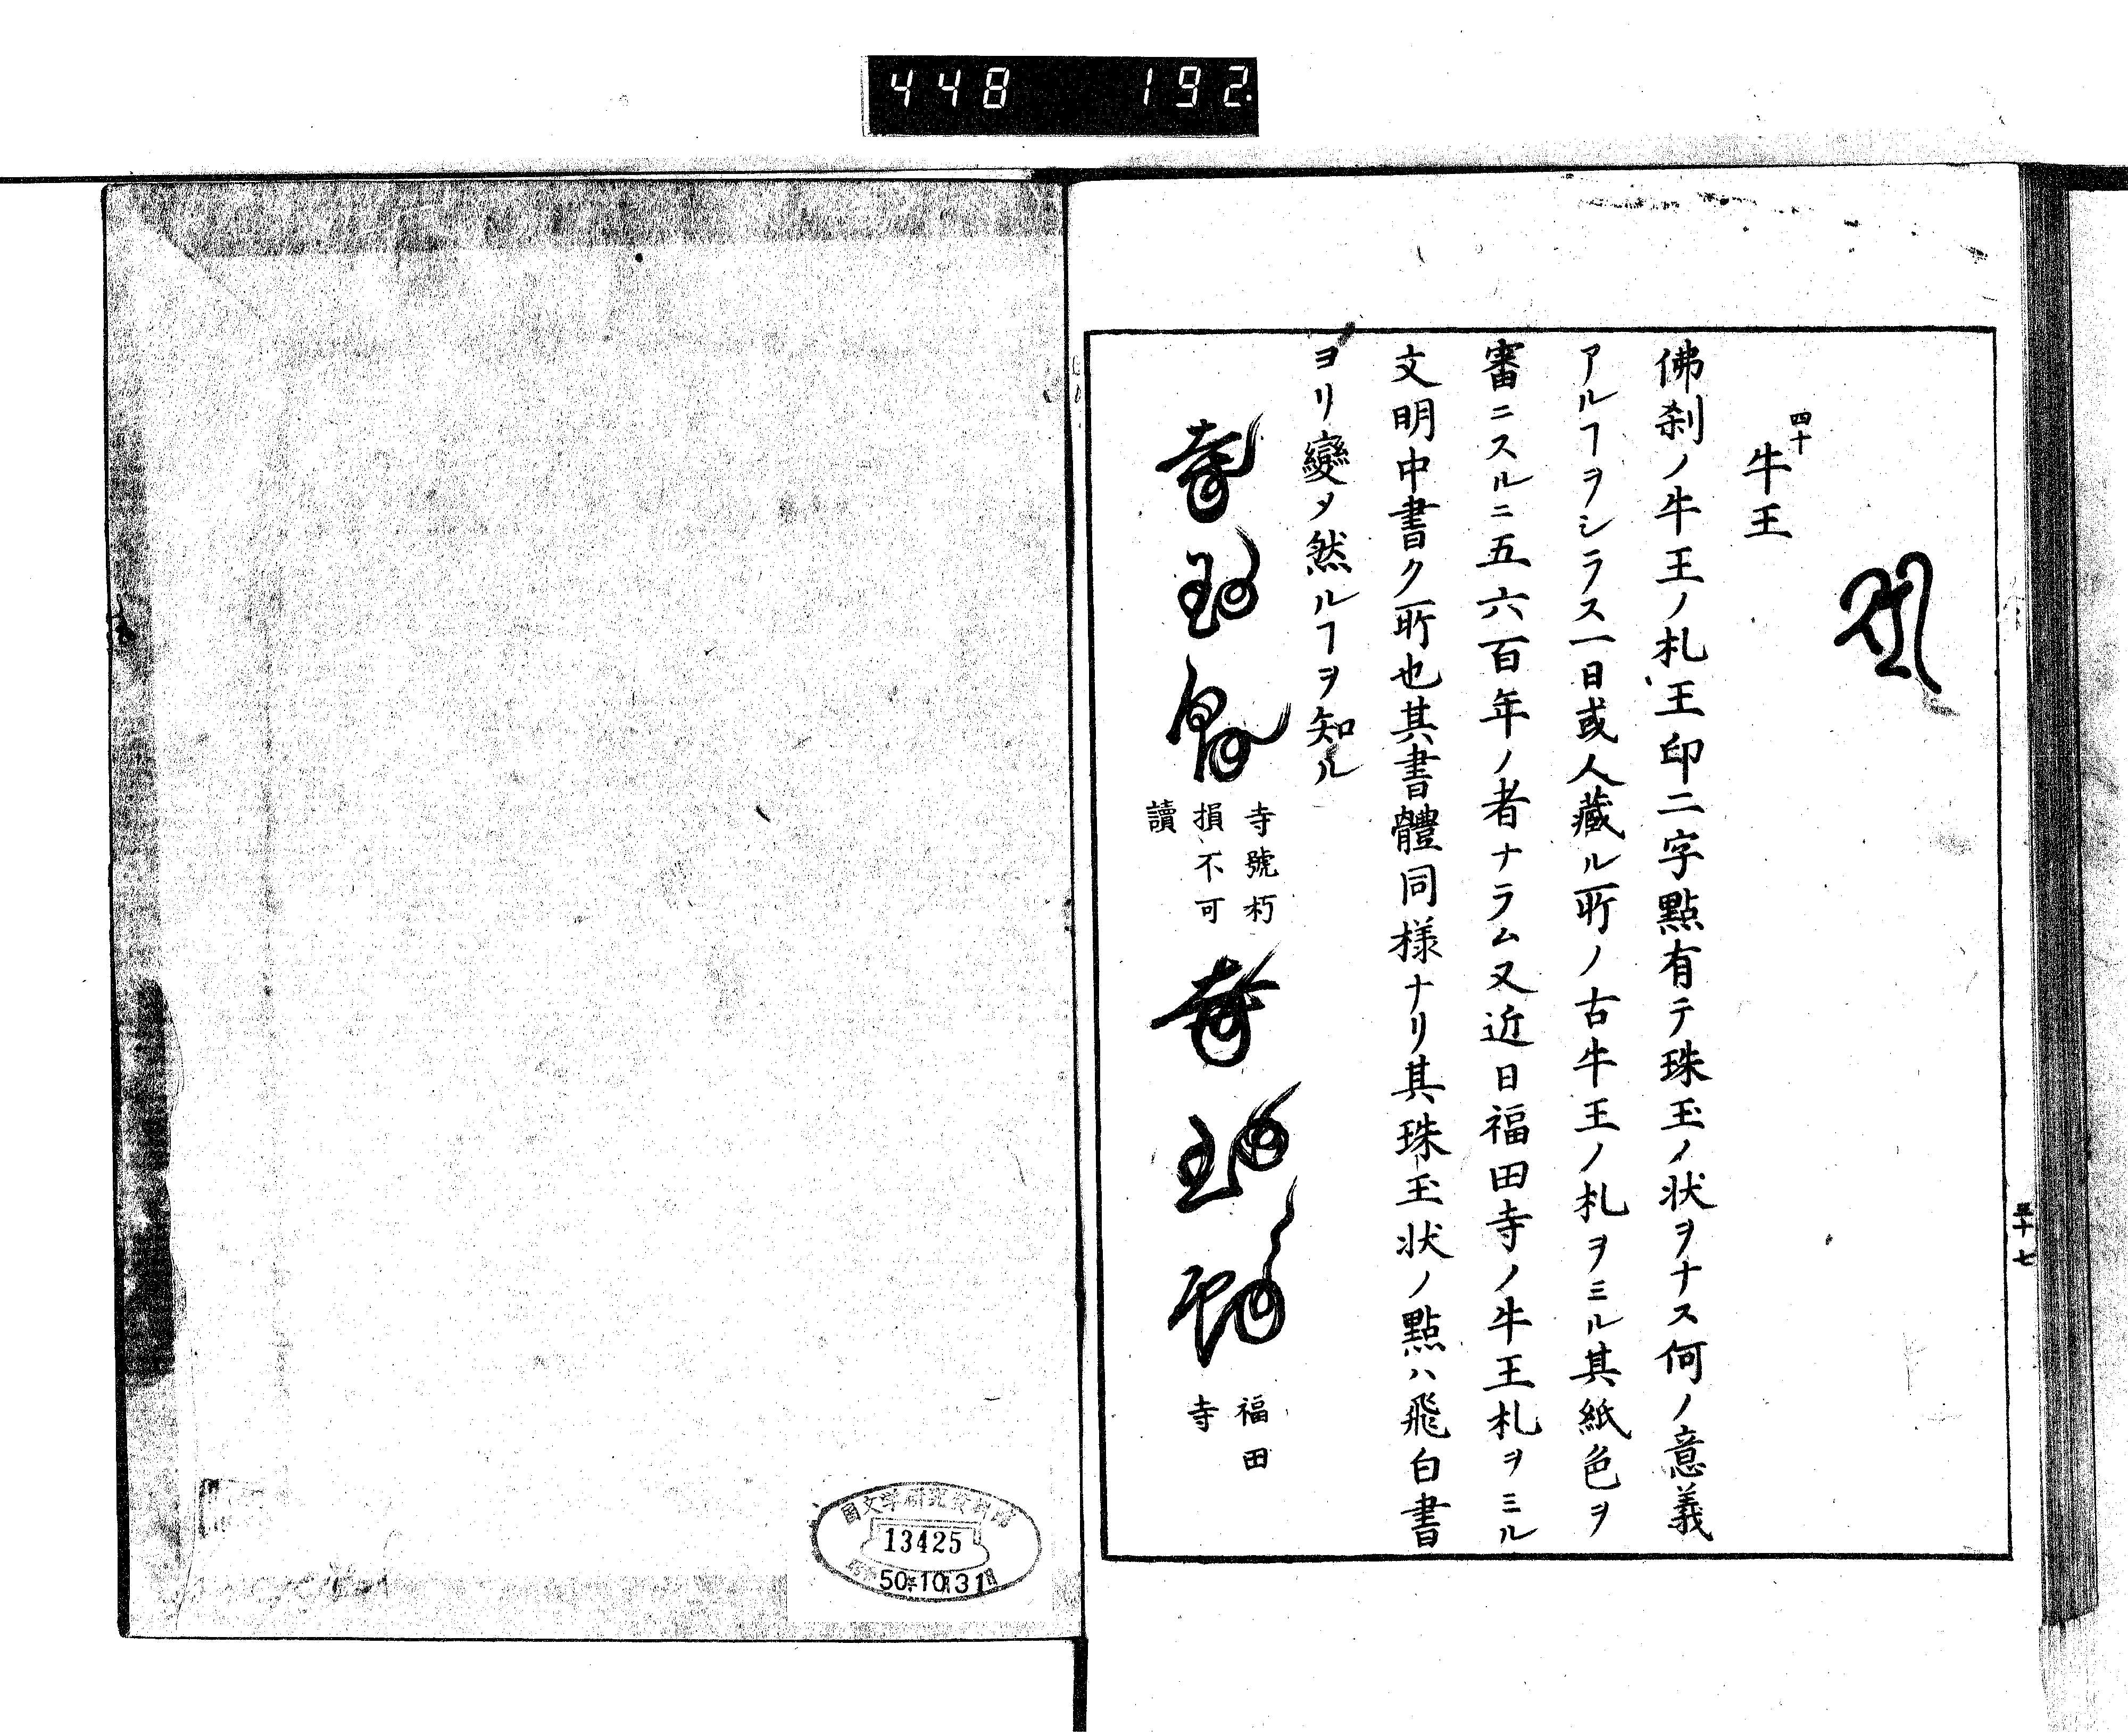 448 192.
四十
牛王
佛刹ノ牛王ノ札王印二字點有テ珠玉ノ状ヲナス何ノ意義
アルヿヲシラス一日或人藏ル所ノ古牛王ノ札ヲミル其紙色ヲ
審ニスルニ五六百年ノ者ナラム又近日福田寺ノ牛王札ヲミル
文明中書ク所也其書體同様ナリ其珠玉状ノ點ハ飛白書
ヨリ變メ然ルヿヲ知ル
寺號朽
損不可
讀
福田
寺
五十七
國文学研究資料館
13425
50年10月31日